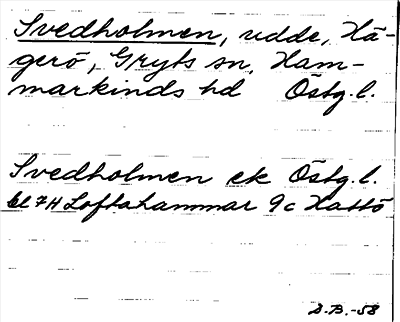 Svedholmen, udde, Hä-
gerö, Gryts sn, Ham-
markinds hd Östg. l.
Svedholmen ek Östg. l.
bl 7H Loftahammar 9c Hattö
D.B.-58